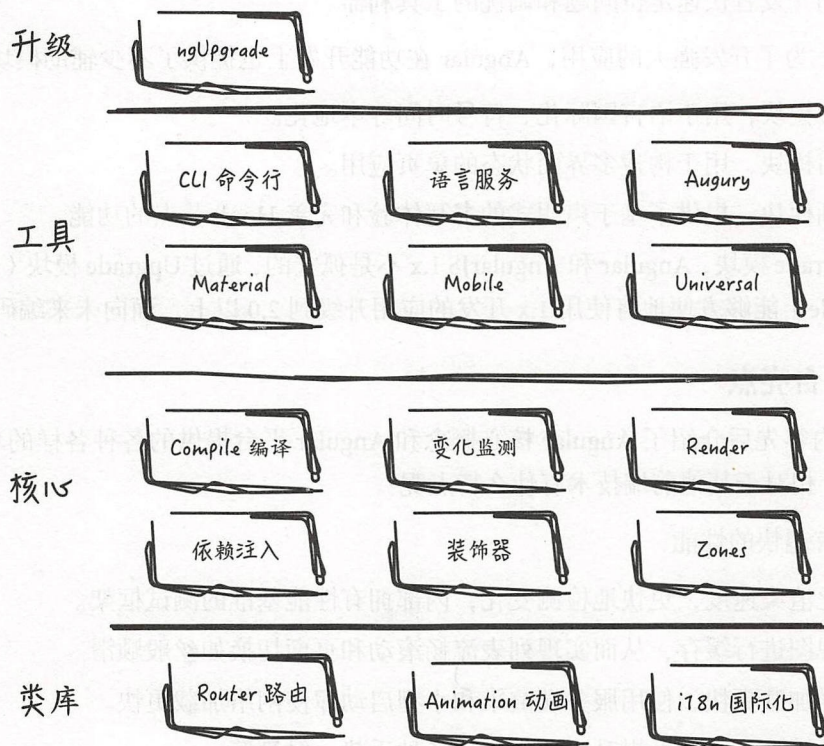 升级
ngUpgrade
工具
CLI 命令行
语言服务
Augury
Material
Mobile
Universal
核心
Compile 编译
变化监测
Render
依赖注入
装饰器
Zones
类库
Router 路由
Animation 动画
i18n 国际化